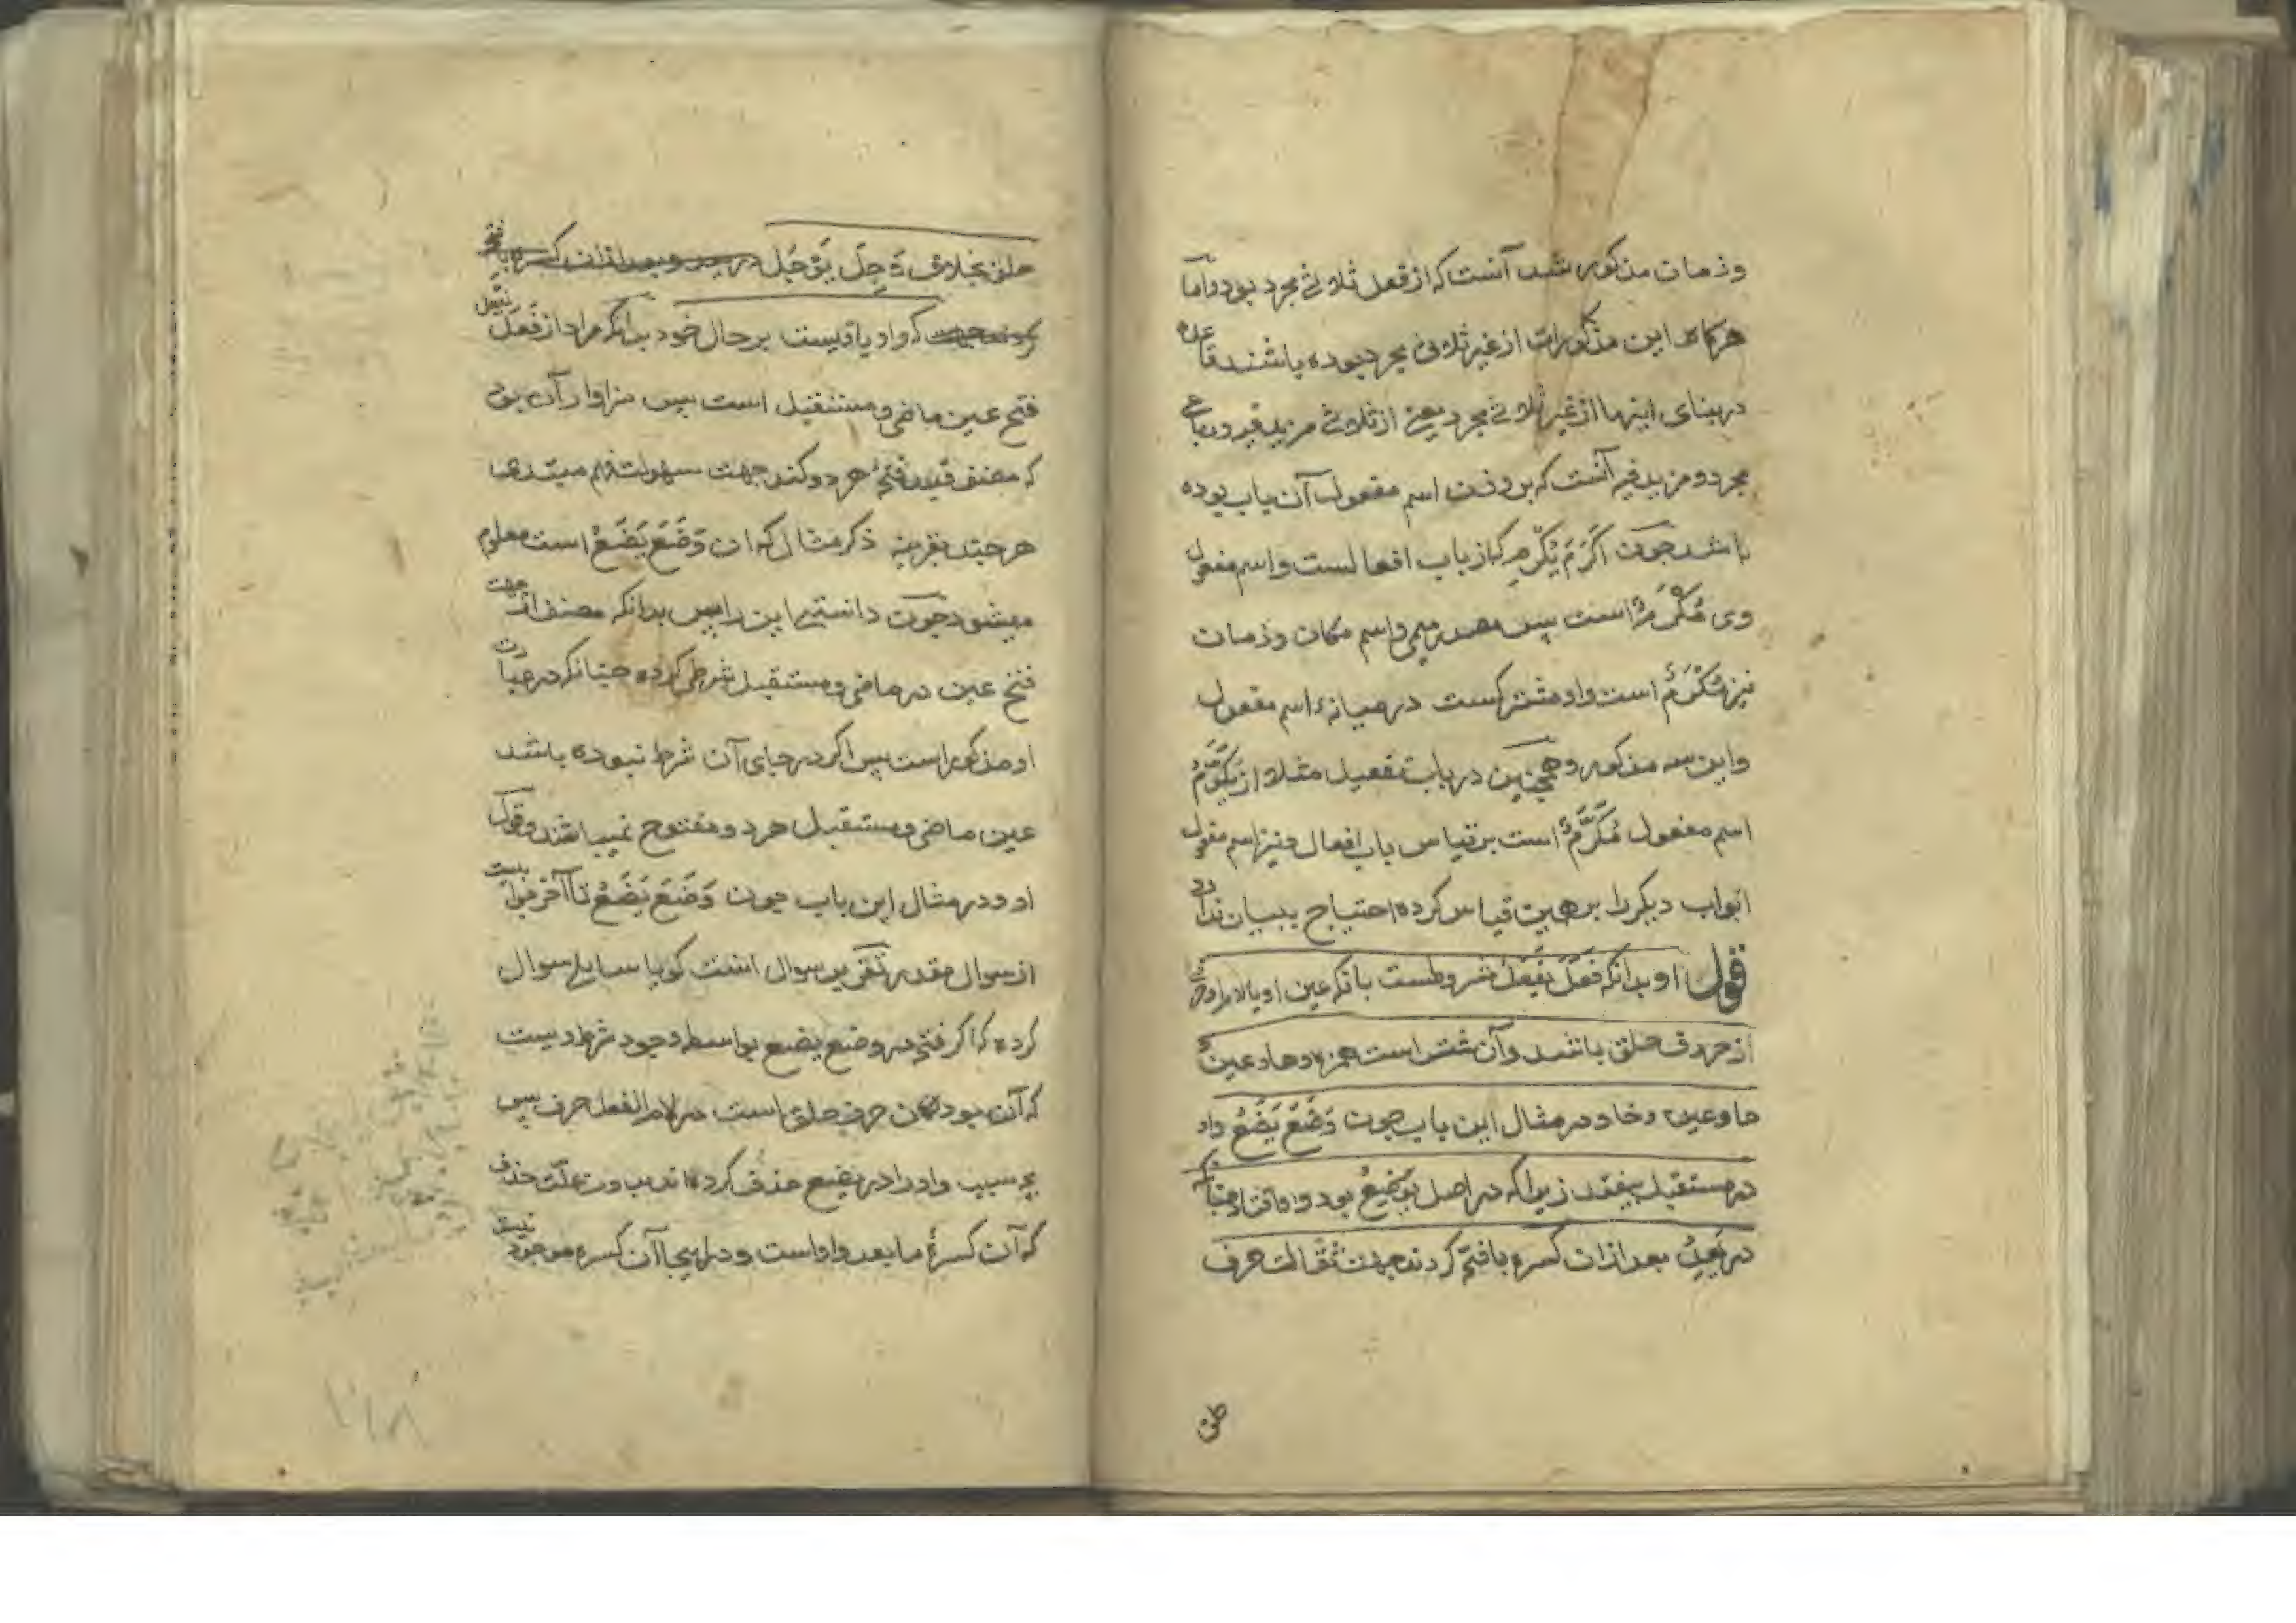 وزمان مذکور شد آنست که از فعل ثلاثی مجرد بود واما
هرکاه این مذکورات از غیر ثلاثی مجرد بوده باشند قاعده
در بنای اینها از غیر ثلاثی مجرد یعنی از ثلاثی مزید فیه ورباعی
مجرد و مزید فیه آنست که بر وزن اسم مفعول آن باب بوده
باشد چون اَکْرَمَ یُکْرِمُ که از باب افعالست واسم مفعول
وی مُکْرَمٌ است پس مصدر میمی واسم مکان وزمان
نیز مُکْرَمٌ است واو مشترکست در میانه اسم مفعول
واین سه مذکور وهمچنین در باب تفعیل مثلا از یُکَرِّمُ
اسم مفعول مُکَرَّمٌ است بر قیاس باب افعال ونیز اسم مفعول
ابواب دیکر را بر همین قیاس کرده احتیاج ببیان ندارد
قول او بدانکه فَعَلَ یَفْعَلُ مشروطست بانکه عین او یا لام او حرفی
از حروف حلق باشد وآن شش است همزه وها وعین و
حا وغین وخا ودر مثال این باب چون وَضَعَ یَضَعُ واو
در مستقبل بیفتد زیرا که در اصل یَوْضِعُ بود واو افتاد چنانکه
در یَعِدُ بعد ازان کسره بافتح کردند جهت ثقالت حرف
حلق
حلق بخلاف وَجِلَ یَوْجَلُ
که واو باقیست بر حال خود بدانکه مراد از فَعَلَ یفعل
فتح عین ماضی ومستقبل است پس سزاوار آن بود
که مصنف قید فتحهٔ هر دو کند جهت سهولت فهم مبتدی
هر چند بقرینه ذکر مثال که ان وَضَعَ یَضَعُ است معلوم
میشود چون دانستی این را پس بدانکه مصنف از جهت
فتح عین در ماضی ومستقبل شرطی کرده چنانکه در عبارت
او مذکور است پس اکر در جای آن شرط نبوده باشد
عین ماضی ومستقبل هر دو مفتوح نمیباشند وقول
او ودر مثال این باب چون وَضَعَ یَضَعُ تا آخر جوابیست
از سوال مقدر تقریر سوال انست کویا سایل سوال
کرده که اکر فتحه در وضع یضع بواسطه وجود شرطیست
که آن بودن حرف حلق است در لام الفعل حرف پس
بچه سبب واو را در یضع حذف کرده اند بدون علّت حذف
که آن کسرهٔ ما بعد واو است ودر اینجا آن کسره موجود نیست